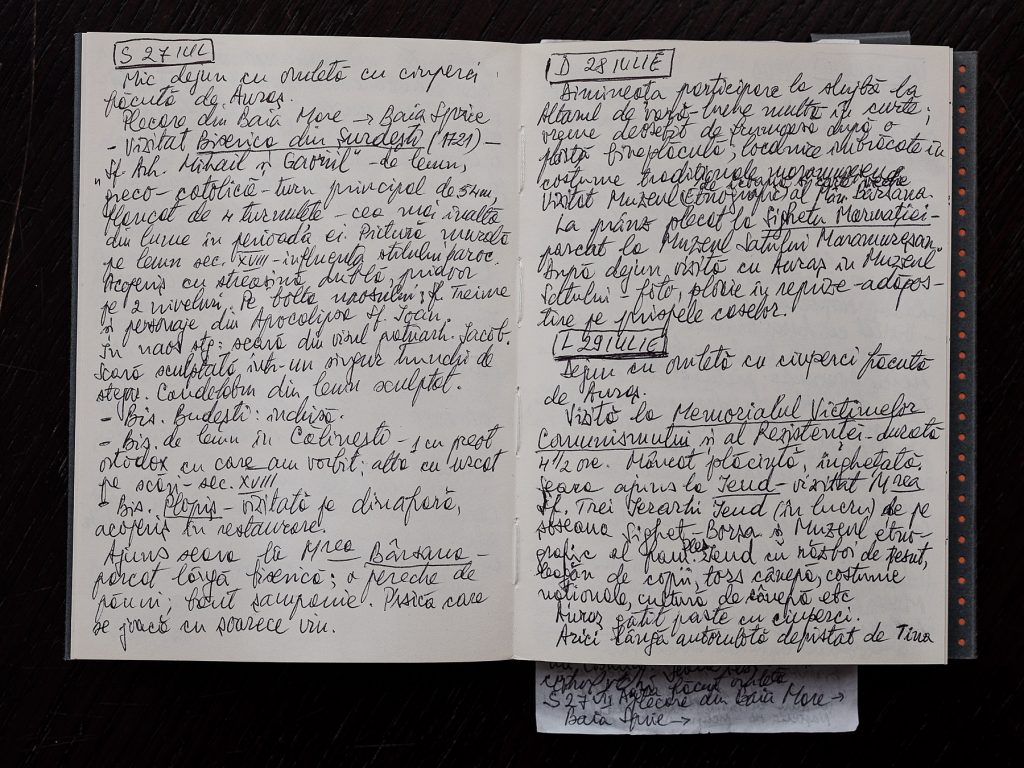 S 27 IUL
Mic dejun cu omletă cu ciuperci
făcută de Auraș.
Plecare din Baia Mare → Baia Sprie
- Vizitat Biserica din Șurdești (1721) -
"Sf. Arh. Mihail și Gavriil" - de lemn,
greco-catolică - turn principal de 54 m,
flancat de 4 turnulețe - cea mai înaltă
din lume în perioada ei. Pictură murală
pe lemn sec. XVIII - influența stilului baroc.
Acoperiș cu streașină dublă, pridvor
pe 2 niveluri. Pe bolta naosului: Sf. Treime
și personaje din Apocalipsa Sf. Ioan.
În naos stg: scară din visul patriarh. Iacob.
Scară sculptată într-un singur trunchi de
stejar. Candelabru din lemn sculptat.
- Bis. Budești: închisă.
- Bis. de lemn în Călinești - 1 cu preot
ortodox cu care am vorbit; alta cu urcat
pe scări - sec. XVIII
- Bis. Plopiș - vizitată pe dinafară,
acoperiș în restaurare.
Ajuns seara la Mrea Bârsana -
parcat lângă biserică; o pereche de
păuni; băut șampanie. Pisică care
se joacă cu șoarece viu.
D 28 IULIE
Dimineața participare la slujbă la
Altarul de vară - lume multă în curte;
vreme deosebit de frumoasă după o
ploaie binefăcută, localnice îmbrăcate în
costume tradiționale maramureșene
Vizitat Muzeul Etnografic al Mân. Bârsana.
La prânz plecat la Sighetu Marmației -
parcat la Muzeul Satului Maramureșan.
După dejun vizită cu Auraș în Muzeul
Satului - foto, ploaie în reprize - adăpos-
tire pe prispele caselor.
L 29 IULIE
Dejun cu omletă cu ciuperci făcută
de Auraș.
Vizită la Memorialul Victimelor
Comunismului și al Rezistenței - durată
4 1/2 ore. Mâncat plăcintă, înghețată.
Seara ajuns la Ieud - vizitat Mrea
Sf. Trei Ierarhi Ieud (în lucru) de pe
șoseaua Sighet - Borșa și Muzeul etno-
grafic al Ieud cu război de țesut,
leagăn de copii, tors cânepă, costume
naționale, cultură de cânepă etc
Auraș gătit paste cu ciuperci.
Arici lângă autorulotă depistat de Tina
S 27 VII plecare din Baia Mare →
Baia Sprie →